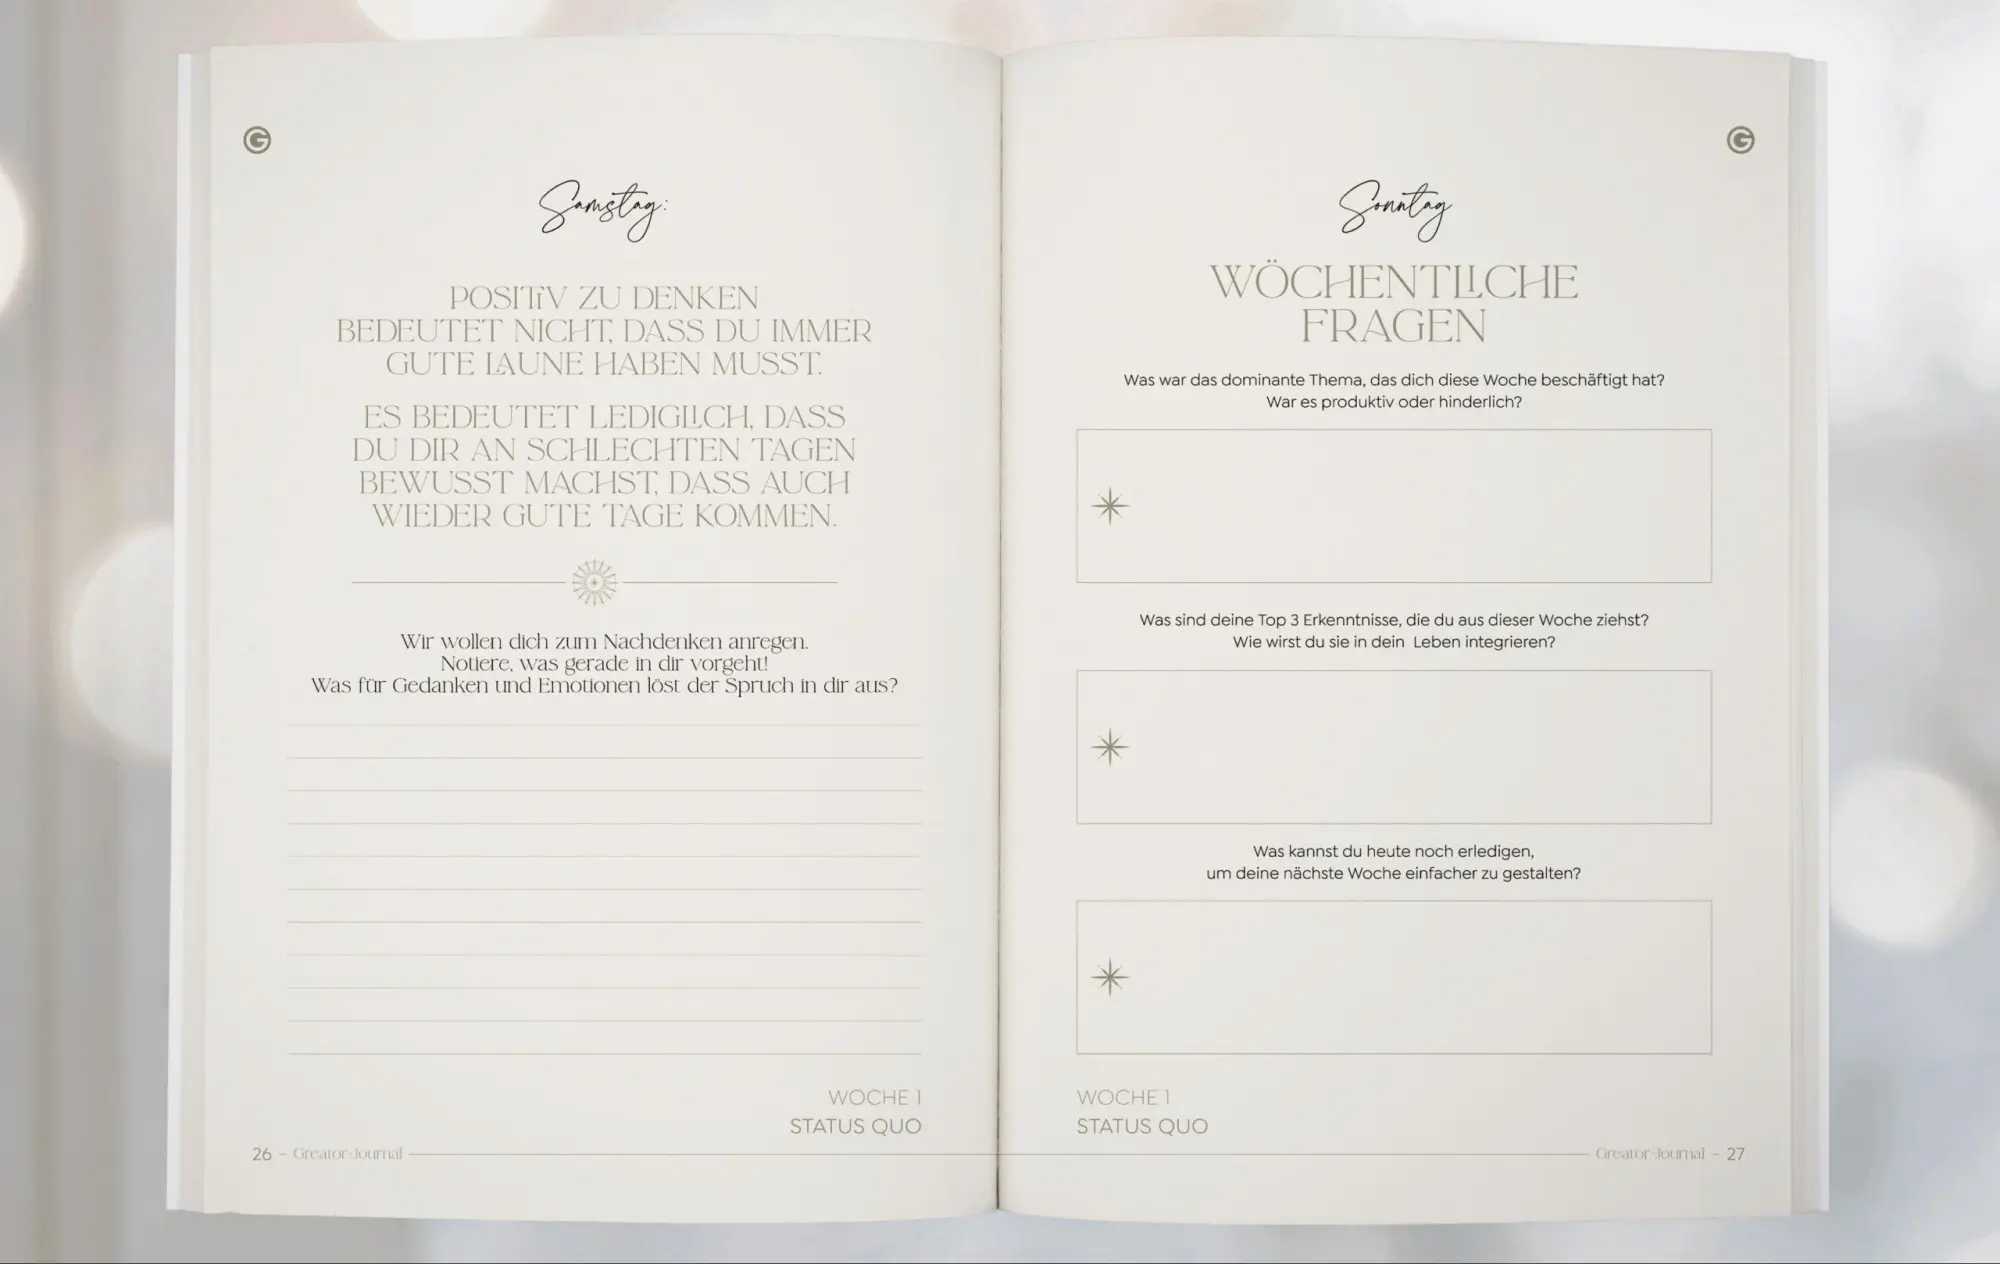 Samstag:
POSITIV ZU DENKEN
BEDEUTET NICHT, DASS DU IMMER
GUTE LAUNE HABEN MUSST.
ES BEDEUTET LEDIGLICH, DASS
DU DIR AN SCHLECHTEN TAGEN
BEWUSST MACHST, DASS AUCH
WIEDER GUTE TAGE KOMMEN.
Wir wollen dich zum Nachdenken anregen.
Notiere, was gerade in dir vorgeht!
Was für Gedanken und Emotionen löst der Spruch in dir aus?
WOCHE 1
STATUS QUO
26 – Greator-Journal
G
G
Sonntag
WÖCHENTLICHE
FRAGEN
Was war das dominante Thema, das dich diese Woche beschäftigt hat?
War es produktiv oder hinderlich?
Was sind deine Top 3 Erkenntnisse, die du aus dieser Woche ziehst?
Wie wirst du sie in dein Leben integrieren?
Was kannst du heute noch erledigen,
um deine nächste Woche einfacher zu gestalten?
WOCHE 1
STATUS QUO
Greator-Journal – 27